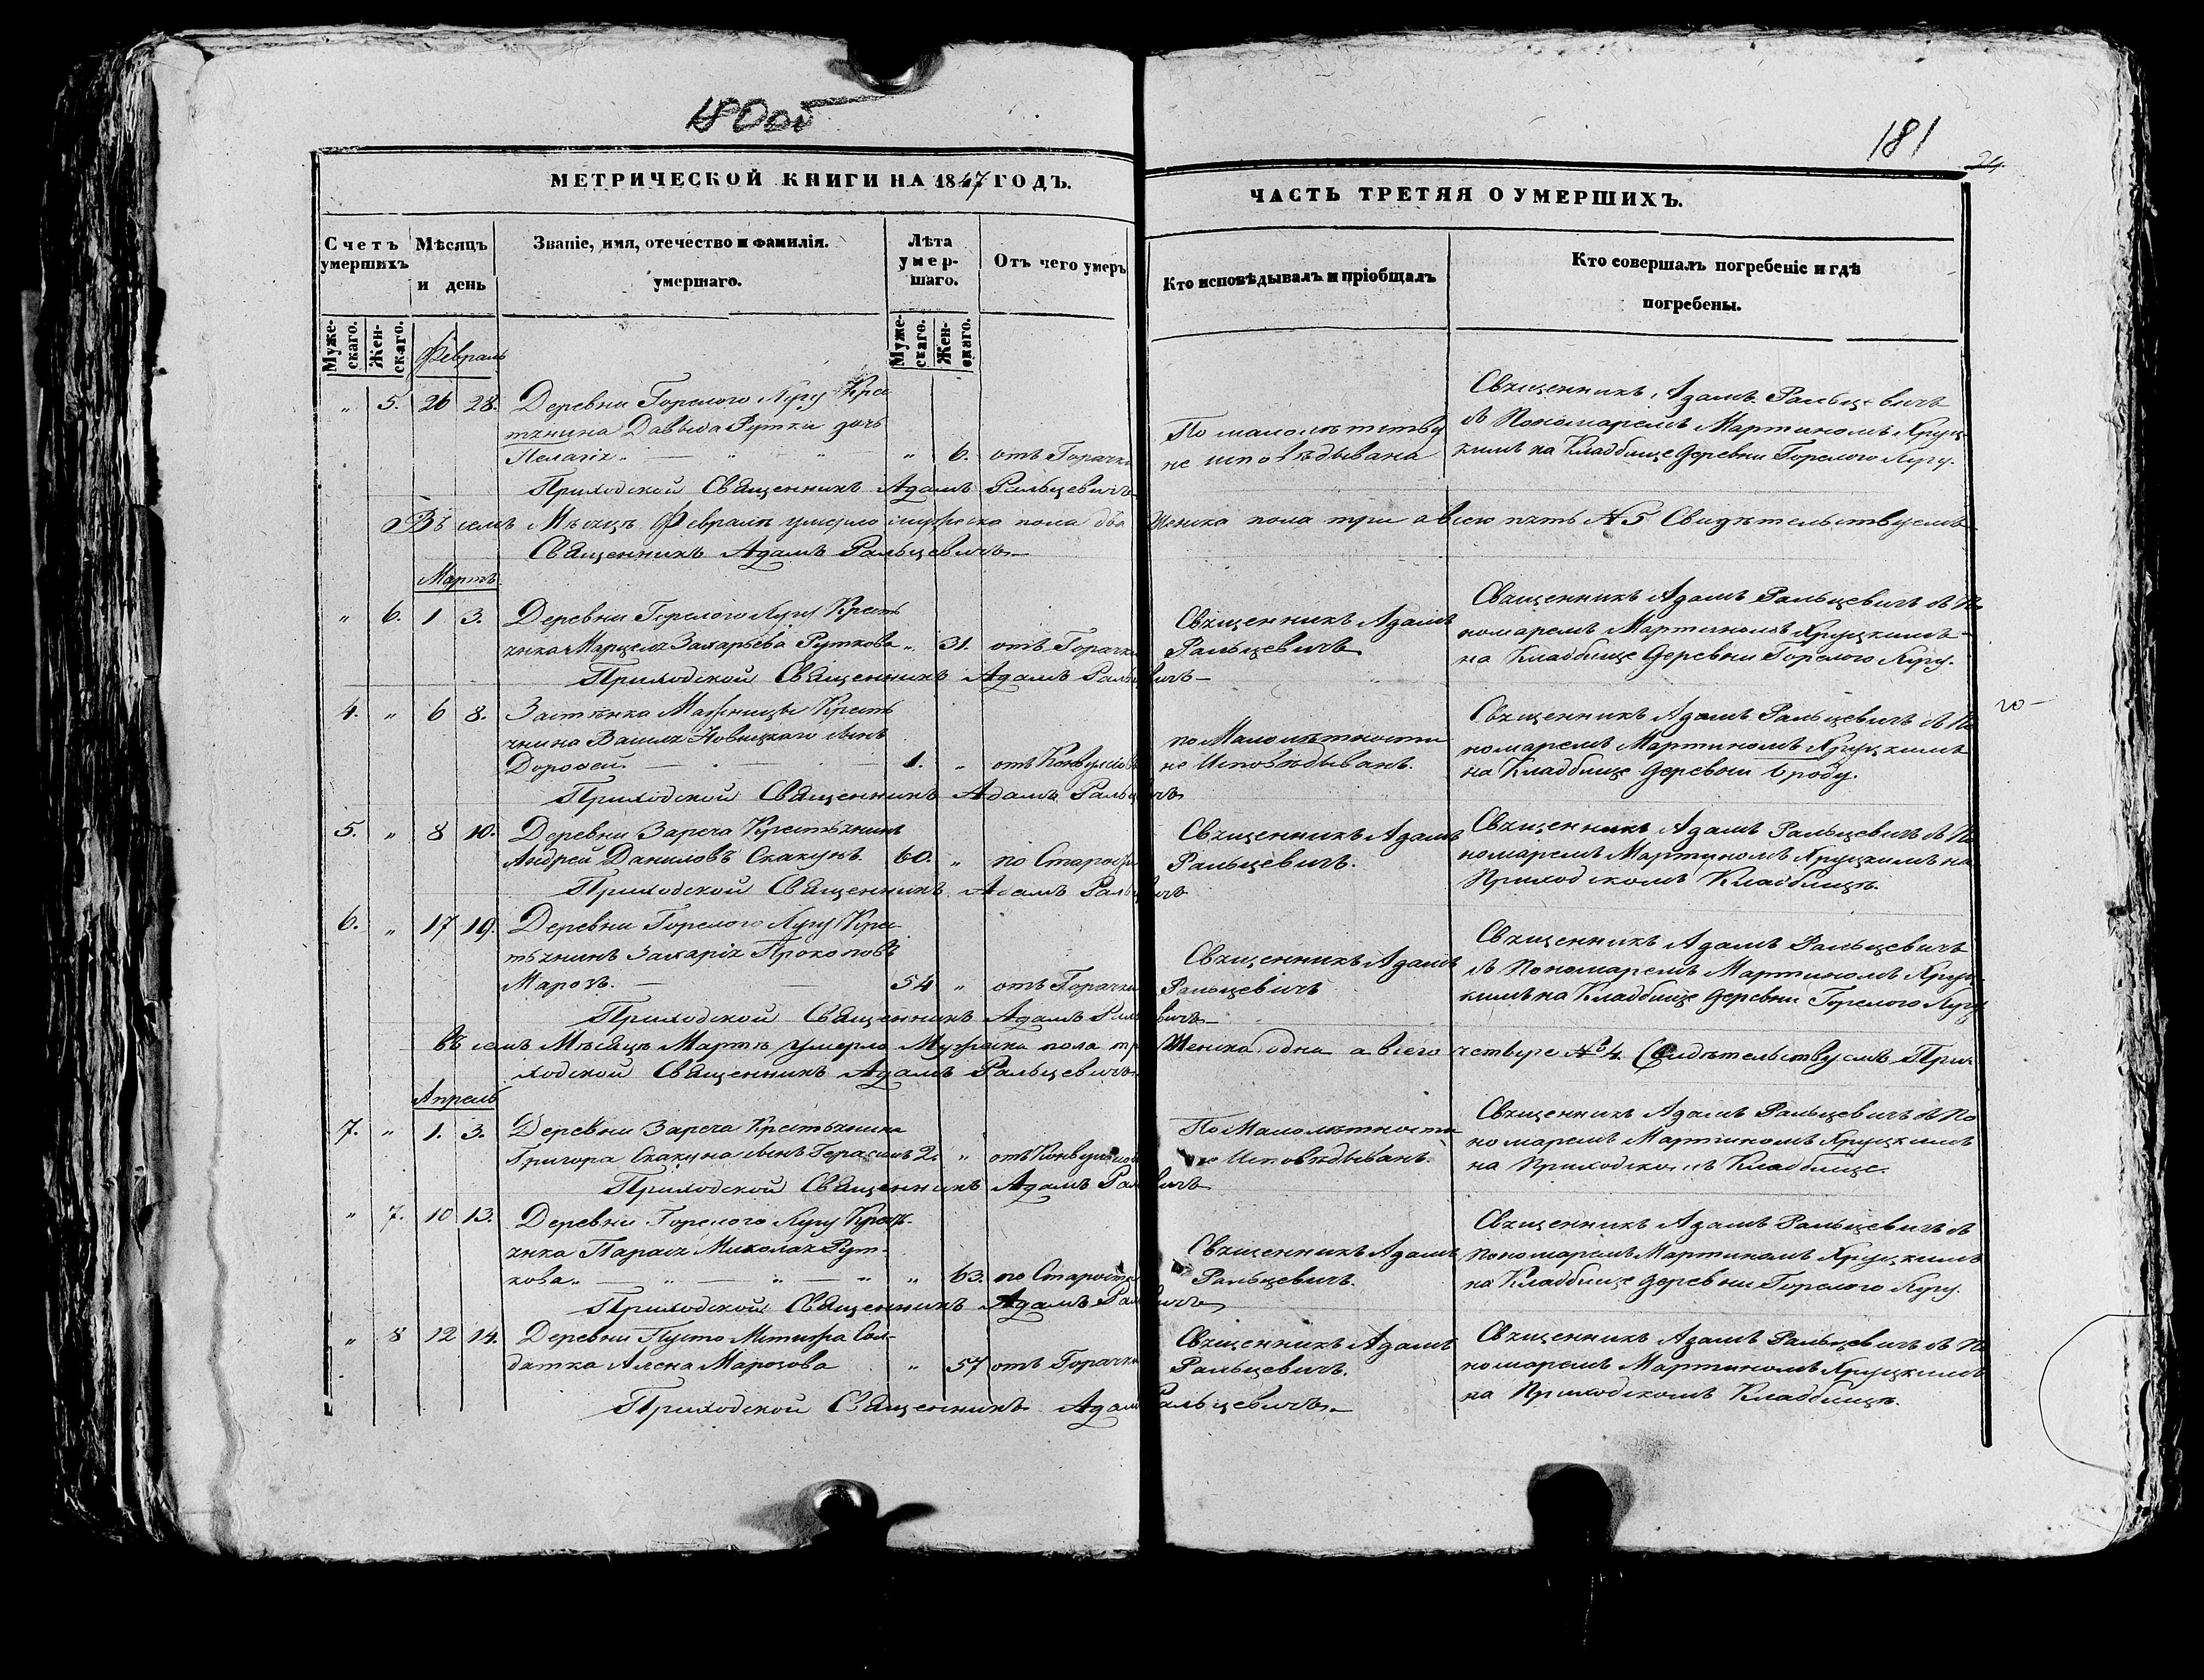 180об
181
24.
МЕТРИЧЕСКОЙ КНИГИ НА 1847 ГОДЪ.
ЧАСТЬ ТРЕТЯЯ О УМЕРШИХЪ.
Счетъ умершихъ
Мѣсяцъ и день
Званіе, имя, отечество и фамилія. умершаго.
Лѣта умер-шаго.
Отъ чего умеръ
Кто исповѣдывалъ и пріобщалъ
Кто совершалъ погребеніе и гдѣ погребены.
Муже-скаго.
Жен-скаго.
Муже-скаго.
Жен-скаго.
Февраль
" 5. 26 28. Деревни Горелого Лугу Крес
тянина Давыда Рутки дочь
Пелагія " 6. отъ Горачки
По малолѣтству
не исповѣдывана
Священникъ Адамъ Ральцевичъ
съ Пономаремъ Мартиномъ Хруц-
кимъ на Кладбище деревни Горелого Лугу.
Приходской Священникъ Адамъ Ральцевичъ
Въ семъ Мѣсяцѣ Февралѣ умерло мужеска пола два Женска пола три а всего пять №5 Свидѣтельствуемъ
Священникъ Адамъ Ральцевичъ
Мартъ
" 6. 1 3. Деревни Горелого Лугу Кресть
янка Марцеля Захарьева Руткова " 31. отъ Горачки
Священникъ Адамъ
Ральцевичъ
Священникъ Адамъ Ральцевичъ съ По
номаремъ Мартиномъ Хруцкимъ
на Кладбище деревни Горелого Лугу.
Приходской Священникъ Адамъ Ральцевичъ
4. " 6 8. Застѣнка Кресть
янина Василя Новицкаго сынъ
Дорофей 1. " отъ Конвульсіовъ
по Малолѣтности
не Исповѣдыванъ.
Священникъ Адамъ Ральцевичъ съ По
номаремъ Мартиномъ Хруцкимъ
на Кладбище деревни Броду.
20
Приходской Священникъ Адамъ Ральцевичъ
5. " 8 10. Деревни Зареча Крестьянинъ
Андрей Даниловъ Скакунъ. 60. " по Старости
Священникъ Адамъ
Ральцевичъ.
Священникъ Адамъ Ральцевичъ съ По
номаремъ Мартиномъ Хруцкимъ на
Приходскомъ Кладбищѣ.
Приходской Священникъ Адамъ Ральцевичъ
6. " 17 19. Деревни Горелого Лугу Крес
тьянинъ Захарія Прокоповъ
Марозъ. 54 " отъ Горачки
Священникъ Адамъ
Ральцевичъ
Священникъ Адамъ Ральцевичъ
съ Пономаремъ Мартиномъ Хруц
кимъ на Кладбище деревни Горелого Лугу
Приходской Священникъ Адамъ Ральцевичъ
Въ семъ Мѣсяцѣ Мартѣ умерло Мужеска пола три Женска одна а всего четыре №4. Свидѣтельствуемъ При-
ходской Священникъ Адамъ Ральцевичъ
Апрель
7. " 1. 3. Деревни Зареча Крестьянина
Григора Скакуна сынъ Герасимъ 2. " отъ Конвульсіовъ
По Малолѣтности
не Исповѣдыванъ.
Священникъ Адамъ Ральцевичъ съ По
номаремъ Мартиномъ Хруцкимъ
на Приходскомъ Кладбище.
Приходской Священникъ Адамъ Ральцевичъ
" 7. 10 13. Деревни Горелого Лугу Кресть-
янка Парася Миколая Рут-
кова " 63. по Старости
Священникъ Адамъ
Ральцевичъ.
Священникъ Адамъ Ральцевичъ съ
Пономаремъ Мартиномъ Хруцкимъ
на Кладбище деревни Горелого Лугу.
Приходской Священникъ Адамъ Ральцевичъ
" 8 12 14. Деревни Пусто Мстижа Сол-
датка Алена Марозова " 57 отъ Горачки
Священникъ Адамъ
Ральцевичъ.
Священникъ Адамъ Ральцевичъ съ По
номаремъ Мартиномъ Хруцкимъ
на Приходскомъ Кладбищѣ.
Приходской Священникъ Адамъ Ральцевичъ